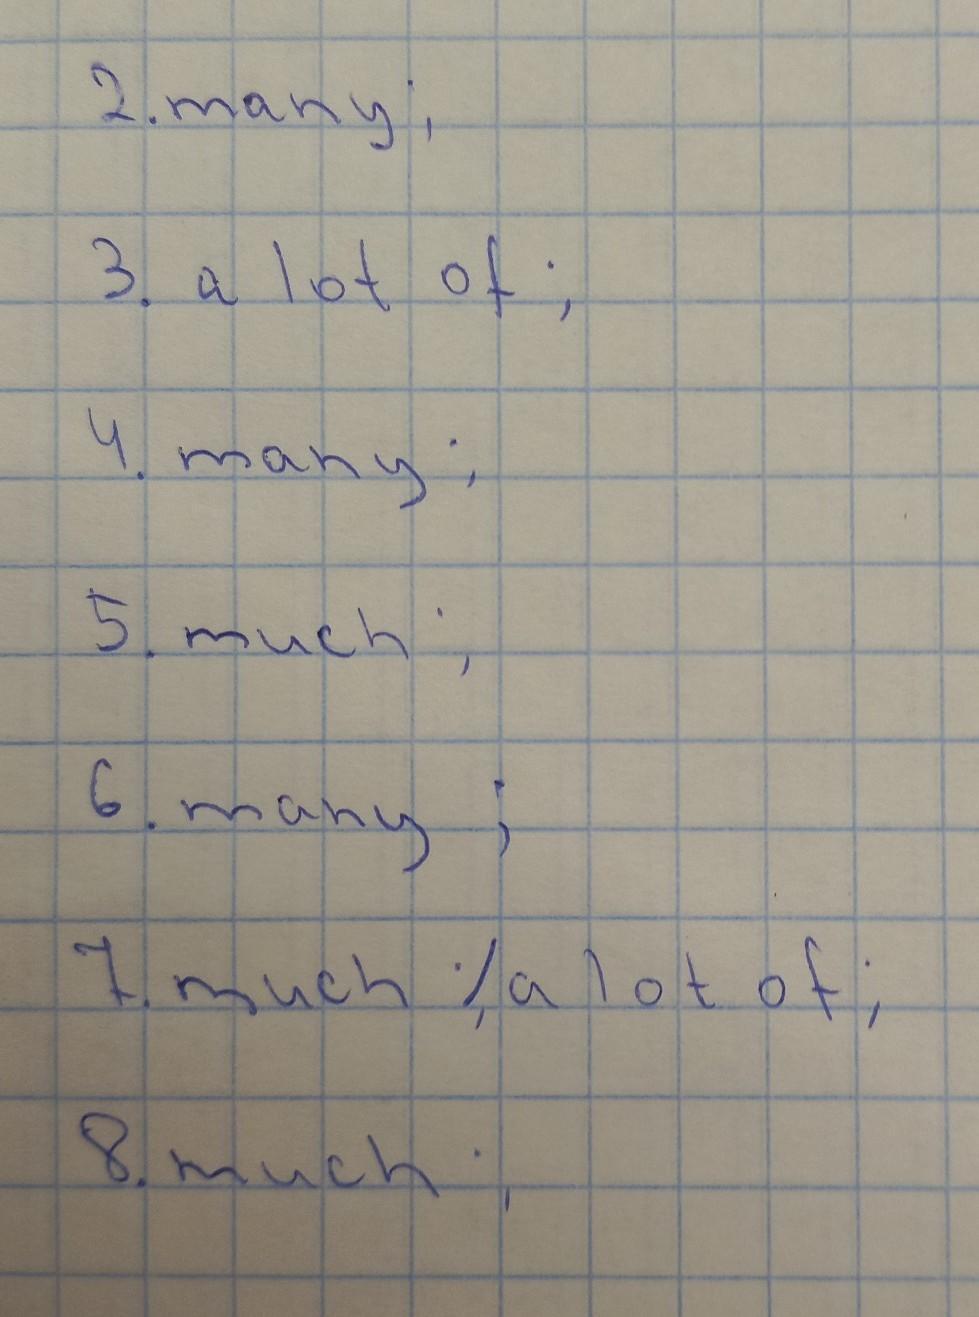 2. many;
3. a lot of;
4. many;
5. much;
6. many;
7. much;/a lot of;
8. much;